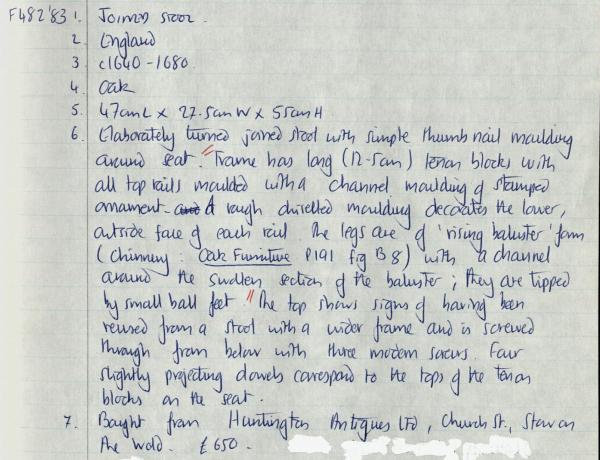 F482'83 1. Joined stool.
2. England
3. c1640-1680.
4. Oak
5. 47cm L x 27.5cm W x 55cm H
6. Elaborately turned joined stool with simple thumb nail moulding
around seat. "Frame has long (12.5cm) tenon blocks with
all top rails moulded with a channel moulding of stamped
ornament. A rough chiselled moulding decorates the lower,
outside face of each rail. The legs are of 'rising baluster' form
(Chinnery: Oak Furniture P191 fig B8) with a channel
around the swollen section of the baluster; they are tipped
by small ball feet." The top shows signs of having been
reused from a stool with a wider frame and is screwed
through from below with three modern screws. Four
slightly projecting dowels correspond to the tops of the tenon
blocks on the seat.
7. Bought from Huntington Antiques LTD, Church St., Stow on
the Wold. £650.